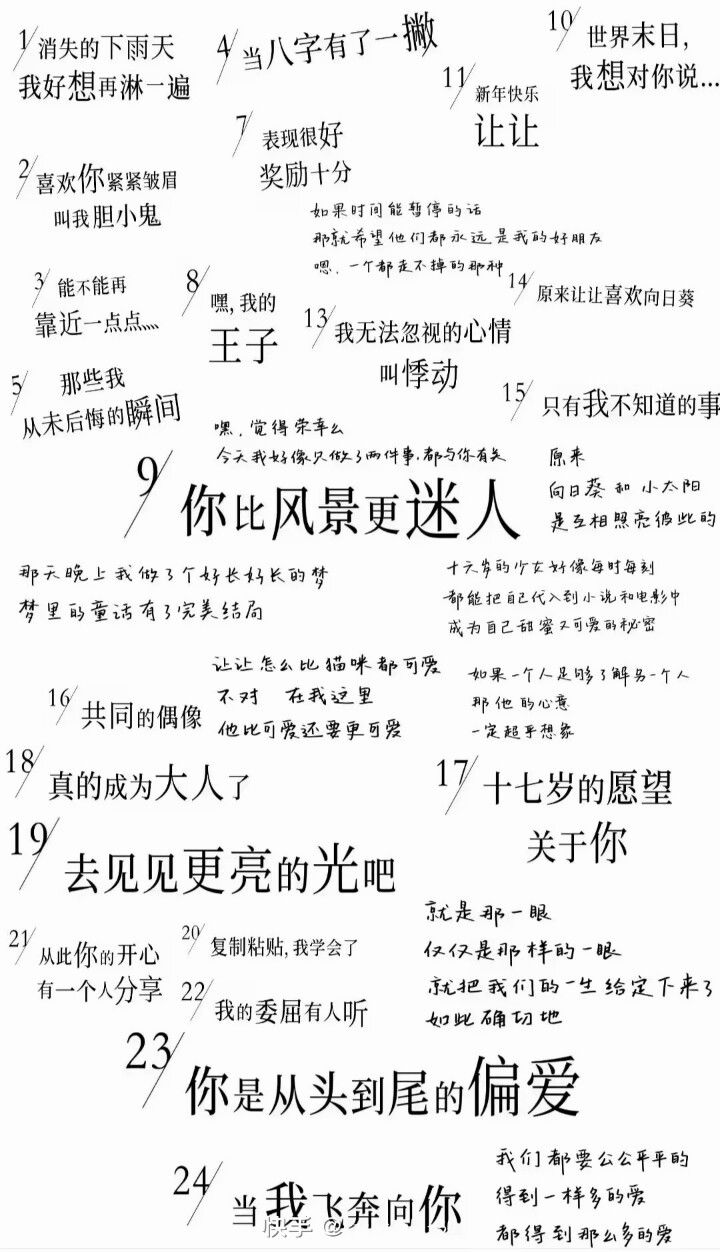 1/ 消失的下雨天
我好想再淋一遍
4/ 当八字有了一撇
10/ 世界末日,
我想对你说...
11/ 新年快乐
让让
7/ 表现很好
奖励十分
2/ 喜欢你紧紧皱眉
叫我胆小鬼
如果时间能暂停的话
那就希望他们都永远是我的好朋友
嗯,一个都走不掉的那种
3/ 能不能再
靠近一点点灬
8/ 嘿,我的
王子
14/ 原来让让喜欢向日葵
13/ 我无法忽视的心情
叫悸动
5/ 那些我
从未后悔的瞬间
15/ 只有我不知道的事
嘿,觉得荣幸么
今天我好像只做了两件事,都与你有关
9/ 你比风景更迷人
原来
向日葵和小太阳
是互相照亮彼此的
那天晚上我做了个好长好长的梦
梦里的童话有了完美结局
十六岁的少女好像每时每刻
都能把自己代入到小说和电影中
成为自己甜蜜又可爱的秘密
让让怎么比猫咪都可爱
不对 在我这里
他比可爱还要更可爱
如果一个人足够了解另一个人
那他的心意
一定超乎想象
16/ 共同的偶像
18/ 真的成为大人了
17/ 十七岁的愿望
关于你
19/ 去见见更亮的光吧
就是那一眼
仅仅是那样的一眼
就把我们的一生给定下来了
如此确切地
21/ 从此你的开心
有一个人分享
20/ 复制粘贴,我学会了
22/ 我的委屈有人听
23/ 你是从头到尾的偏爱
24/ 当我飞奔向你
我们都要公公平平的
得到一样多的爱
都得到那么多的爱
快手 @